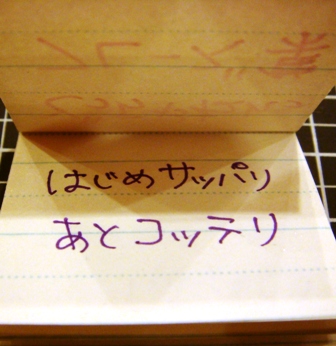 はじめサッパリ
あとコッテリ